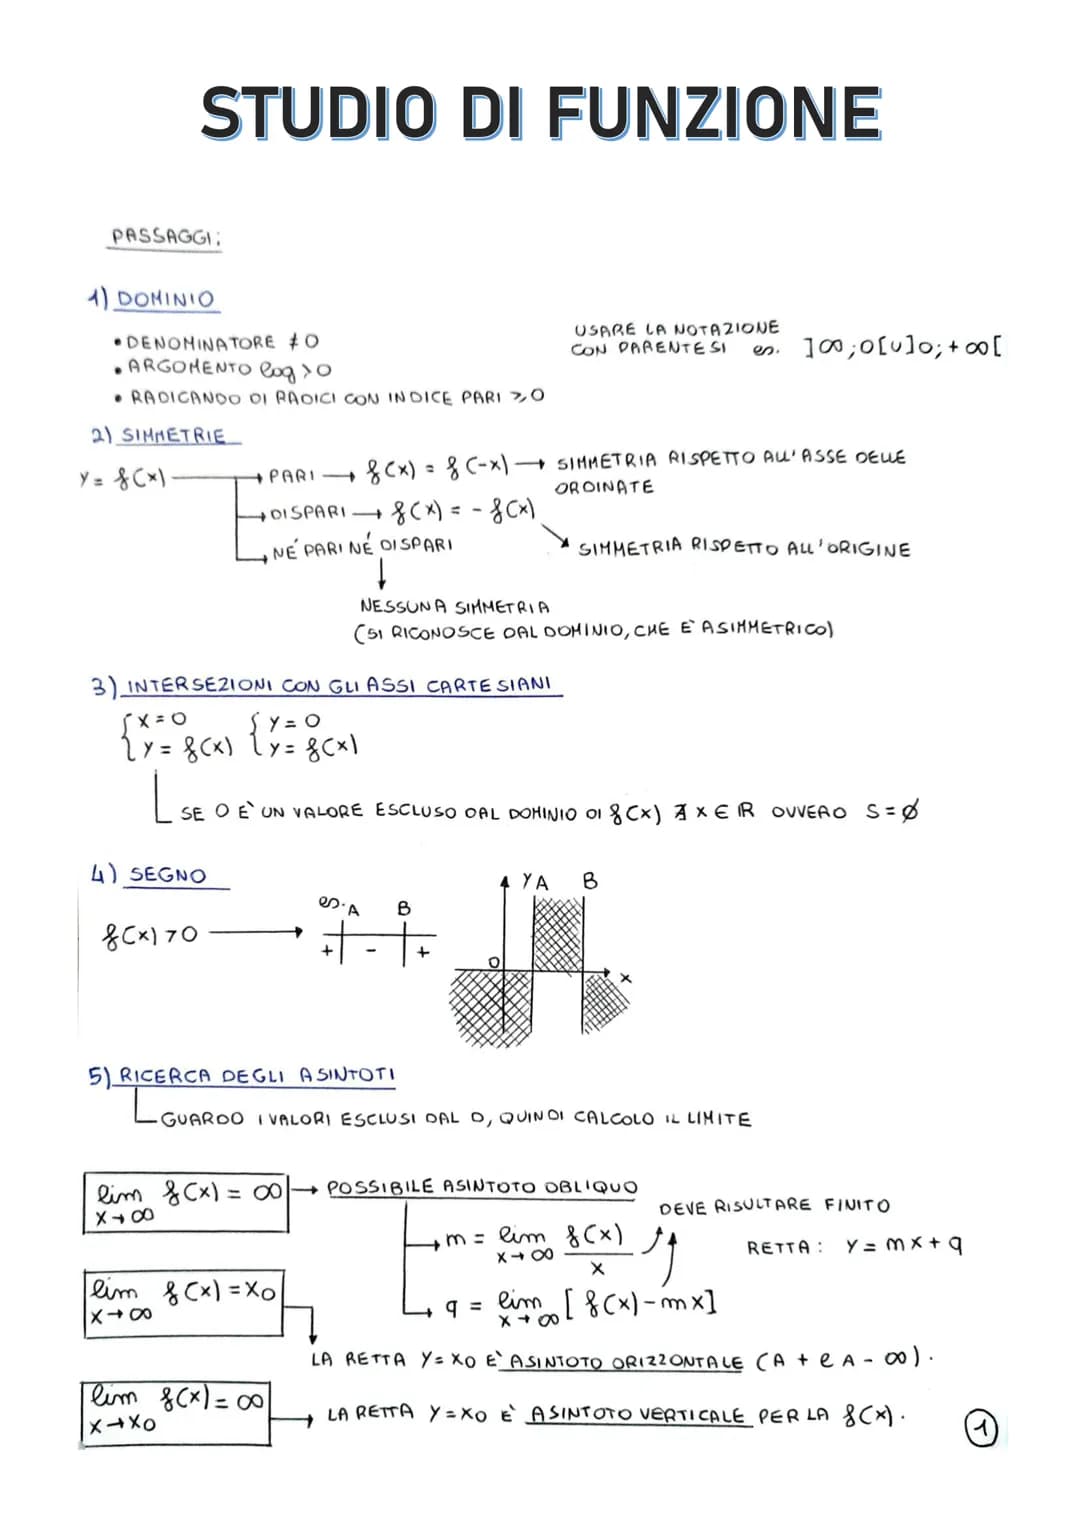 STUDIO DI FUNZIONE
PASSAGGI:
1) DOMINIO
• DENOMINATORE ≠ 0
• ARGOMENTO log > 0
• RADICANDO DI RADICI CON INDICE PARI ⩾ 0
USARE LA NOTAZIONE
CON PARENTESI es. ]∞;0[U]0;+∞[
2) SIMMETRIE
y = f(x) → PARI → f(x) = f(-x) → SIMMETRIA RISPETTO ALL'ASSE DELLE
ORDINATE
→ DISPARI → f(x) = - f(x)
→ NÉ PARI NÉ DISPARI
SIMMETRIA RISPETTO ALL'ORIGINE
NESSUNA SIMMETRIA
(SI RICONOSCE DAL DOMINIO, CHE E' ASIMMETRICO)
3) INTERSEZIONI CON GLI ASSI CARTESIANI
{ x = 0 { y = 0
{ y = f(x) { y = f(x)
SE 0 E' UN VALORE ESCLUSO DAL DOMINIO DI f(x) ∄ x ∈ R OVVERO S = ∅
4) SEGNO
f(x) > 0 →
es. A B
+ - +
y A B
0 x
5) RICERCA DEGLI ASINTOTI
GUARDO I VALORI ESCLUSI DAL D, QUINDI CALCOLO IL LIMITE
lim f(x) = ∞ → POSSIBILE ASINTOTO OBLIQUO
x→∞
DEVE RISULTARE FINITO
→ m = lim f(x)
x→∞ x
RETTA: y = mx + q
lim f(x) = x0
x→∞
→ q = lim [ f(x) - mx]
x→∞
LA RETTA y = x0 E' ASINTOTO ORIZZONTALE (A + e A - ∞).
lim f(x) = ∞
x→x0
→ LA RETTA y = x0 E' ASINTOTO VERTICALE PER LA f(x).
1